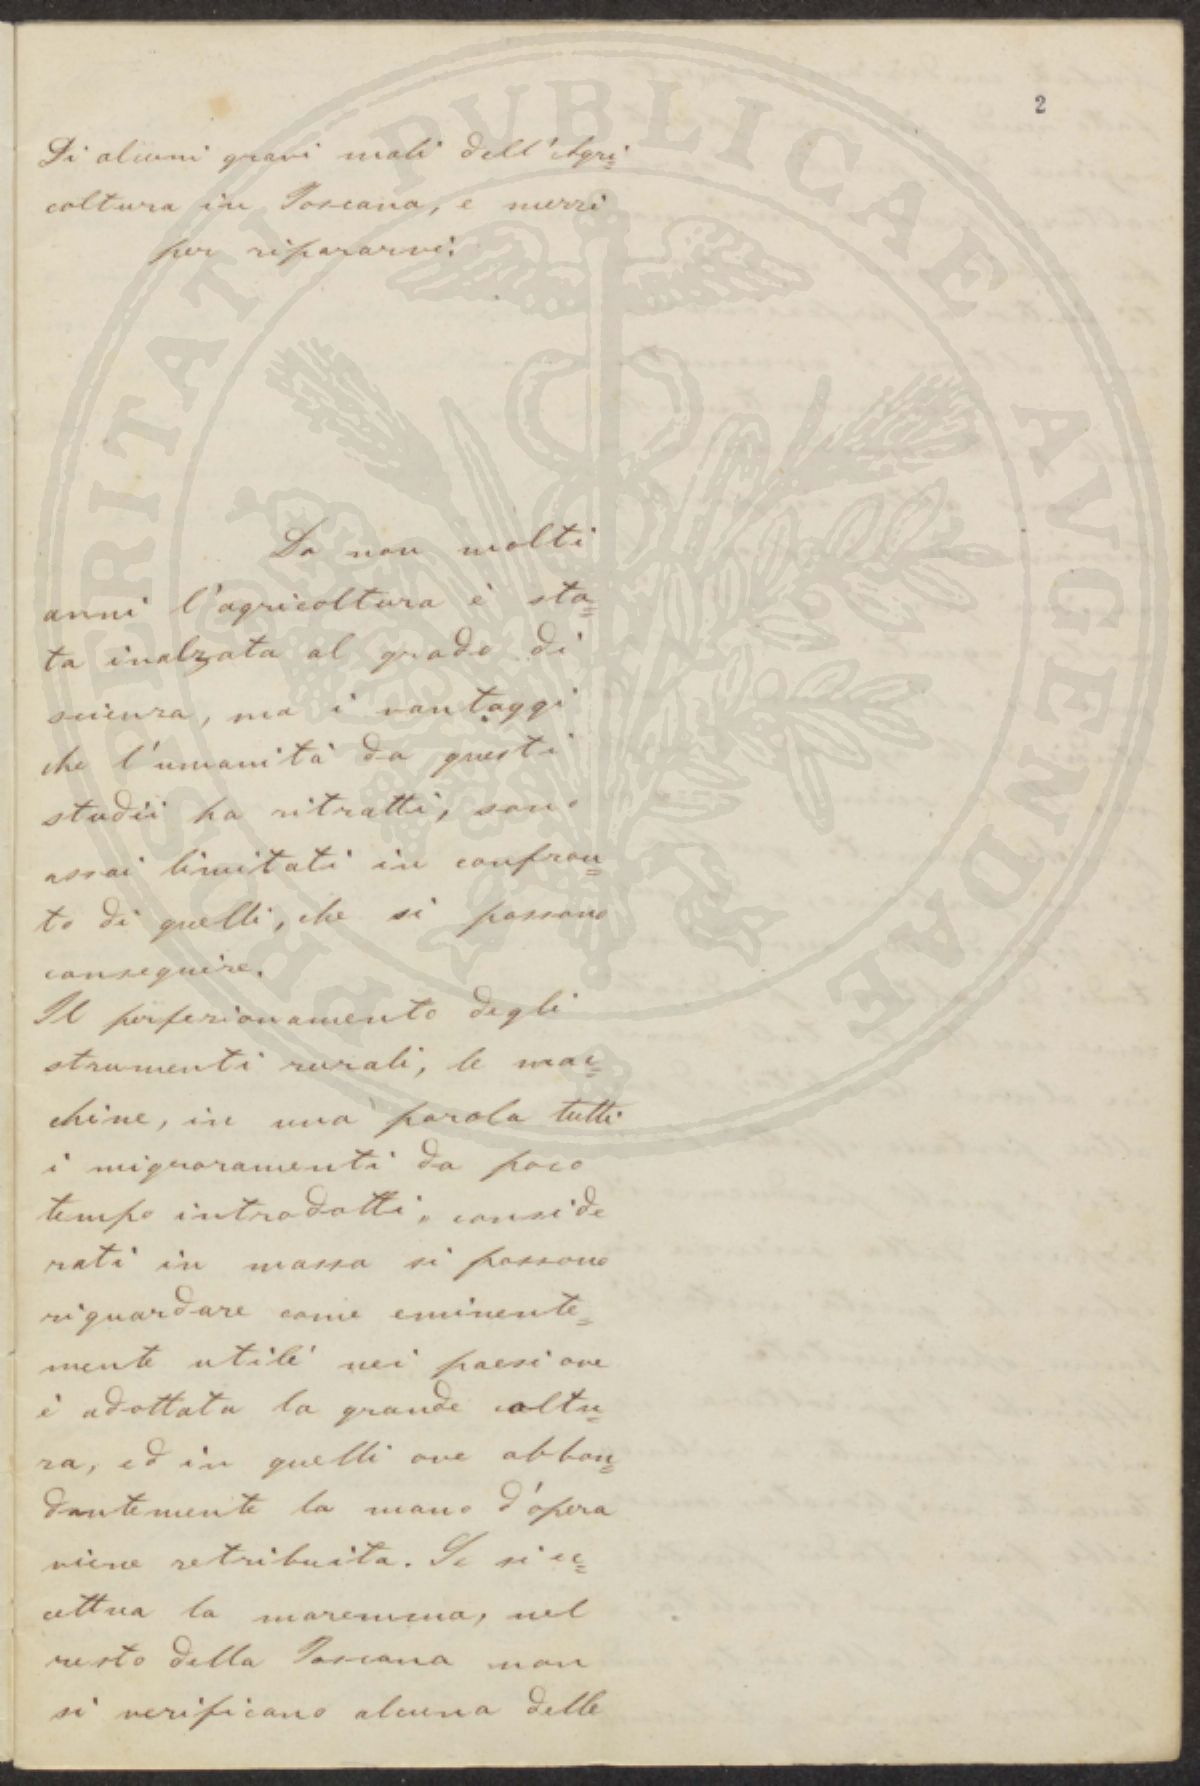 2
Di alcuni gravi mali dell'Agri=
coltura in Toscana, e mezzi
per ripararvi.
Da non molti
anni l'agricoltura è sta=
ta inalzata al grado di
scienza, ma i vantaggi
che l'umanità da questi
studii ha ritratti, sono
assai limitati in confron=
to di quelli, che si possono
conseguire.
Il perfezionamento degli
strumenti rurali, le mac=
chine, in una parola tutti
i miglioramenti da poco
tempo introdotti, conside
rati in massa si possono
riguardare come eminente=
mente utili nei paesi ove
è adottata la grande coltu=
ra, ed in quelli ove abbon=
dantemente la mano d'opera
viene retribuita. Se si ec=
cettua la maremma, nel
resto della Toscana non
si verificano alcuna delle
PROSPERITATI PUBLICAE AVGENDAE